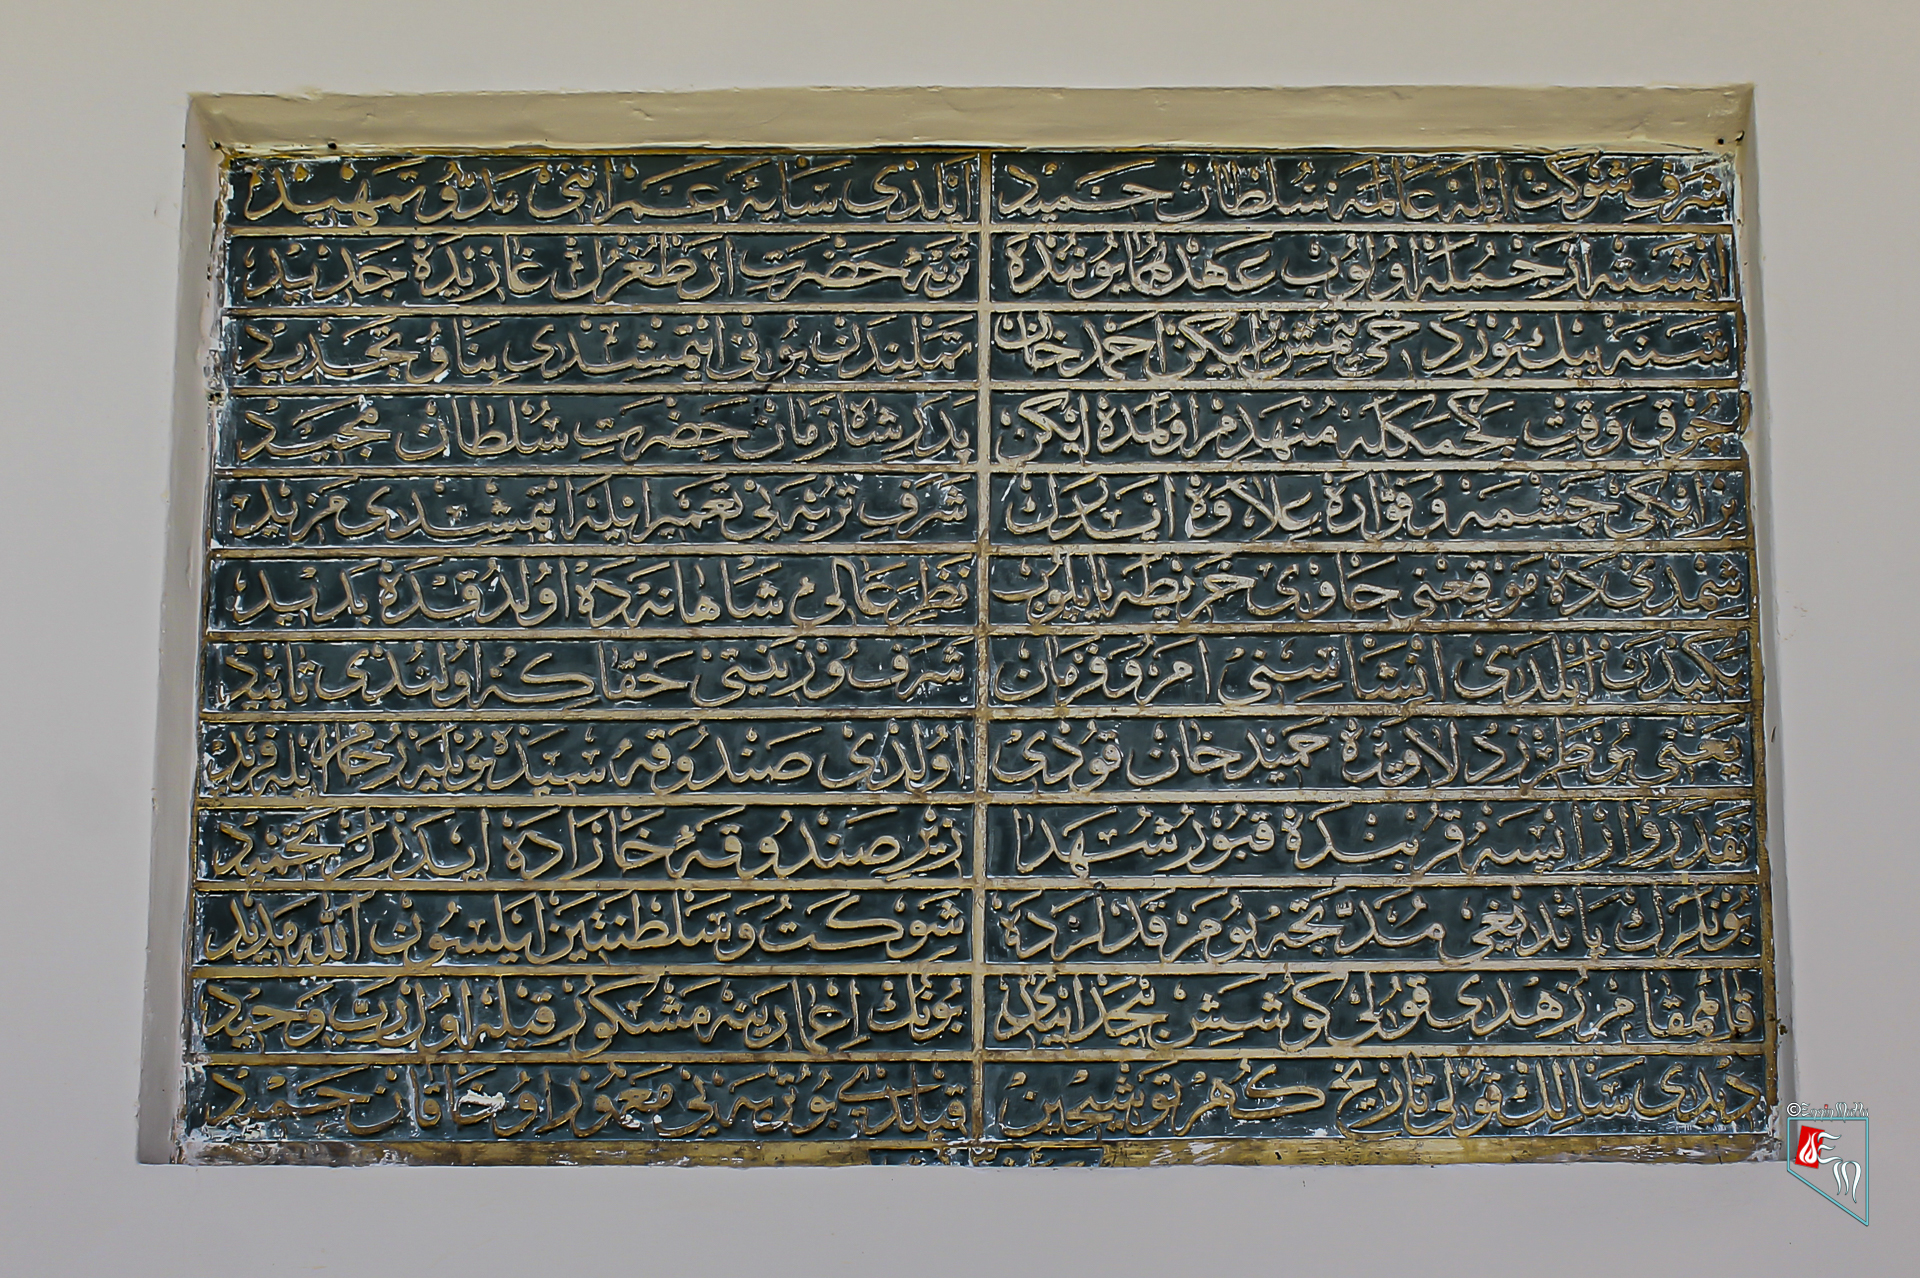 شرف شوكت ايله عالمه سلطان حميد ايلدى سايهٔ عمرانى مد و تمهيد
ايشته از جمله اولوب عهد همايوننده تربهٔ حضرت ارطغرل غازيده جديد
سنه بيك يوز خان تملندن بونى ايتمشدى بنا و تجديد
چوق وقت كچمكله منهدم اولمده ايكن پدر شاه زمان حضرت سلطان مجيد
بر ايكى چشمه و فواره علاوه ايدرك شرف تربه نى تعمير ايله ايتمشدى مزيد
شمدى ده موقعنى حاوى خريطه ايلوب نظر عالئ شاهانه ده اولدقده بديد
يكيدن ايلدى انشاسنى امر و فرمان شرف و زينتى حقا كه اولندى تأييد
يعنى بو طرزده حميد خان قودى اولدى صندوقه سيده بويله رخام ايله فريد
ايسه قربنده قبور شهدا زير صندوقهٔ
بونلرك پاندبغى مدتجه بو مرقدلرده شوكت و سلطنتين ايلسون الله مديد
قائممقام زهدى قولى كوشش بونك اعمارينه مشكور قيله اول رب وحيد
ديدى سالك قولى تاريخ كهر توشيحين قلدى بو تربه نى معمور او خاقان حميد